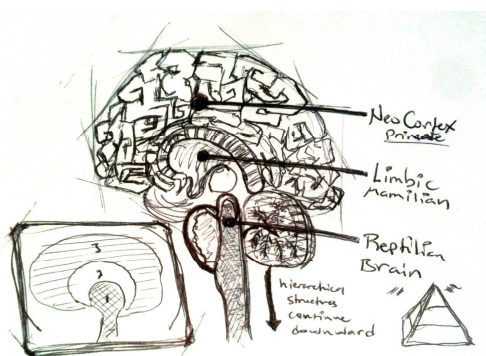 Neo Cortex
Primate
Limbic
Mamilian
Reptilian
Brain
hierarchical
structures
continue
downward
3
2
1